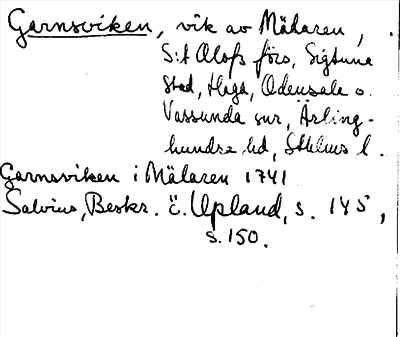 Garnsviken, vik av Mälaren,
S:t Olofs förs, Sigtuna
Stad, Haga, Odensala o.
Vassunda snr, Ärling-
hundra hd, Sthlms l.
Garnsviken i Mälaren 1741
Salvius, Beskr. ö. Upland, s. 145,
s. 150.